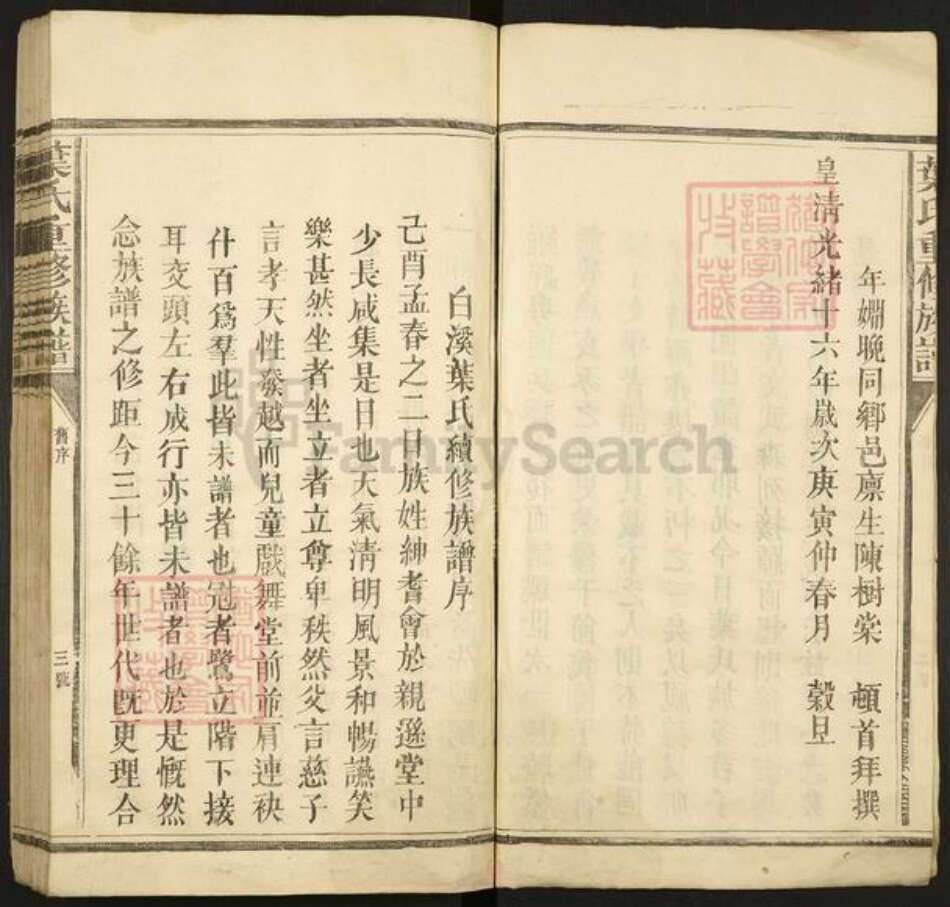 葉氏重修族譜
年婣晚同鄉邑廩生陳樹棠 頓首拜撰
皇清光緒十六年歲次庚寅仲春月 穀旦
白溪葉氏續修族譜序
己酉孟春之二日族姓紳耆會於親遜堂中
少長咸集是日也天氣清明風景和暢讌笑
樂甚然坐者坐立者立尊卑秩然父言慈子
言孝天性發越而兒童戲舞堂前並肩連袂
什百爲羣此皆未譜者也冠者鷺立階下接
耳交頭左右成行亦皆未譜者也於是慨然
念族譜之修距今三十餘年世代既更理合
葉氏重修族譜
舊序
三號
FamilySearch